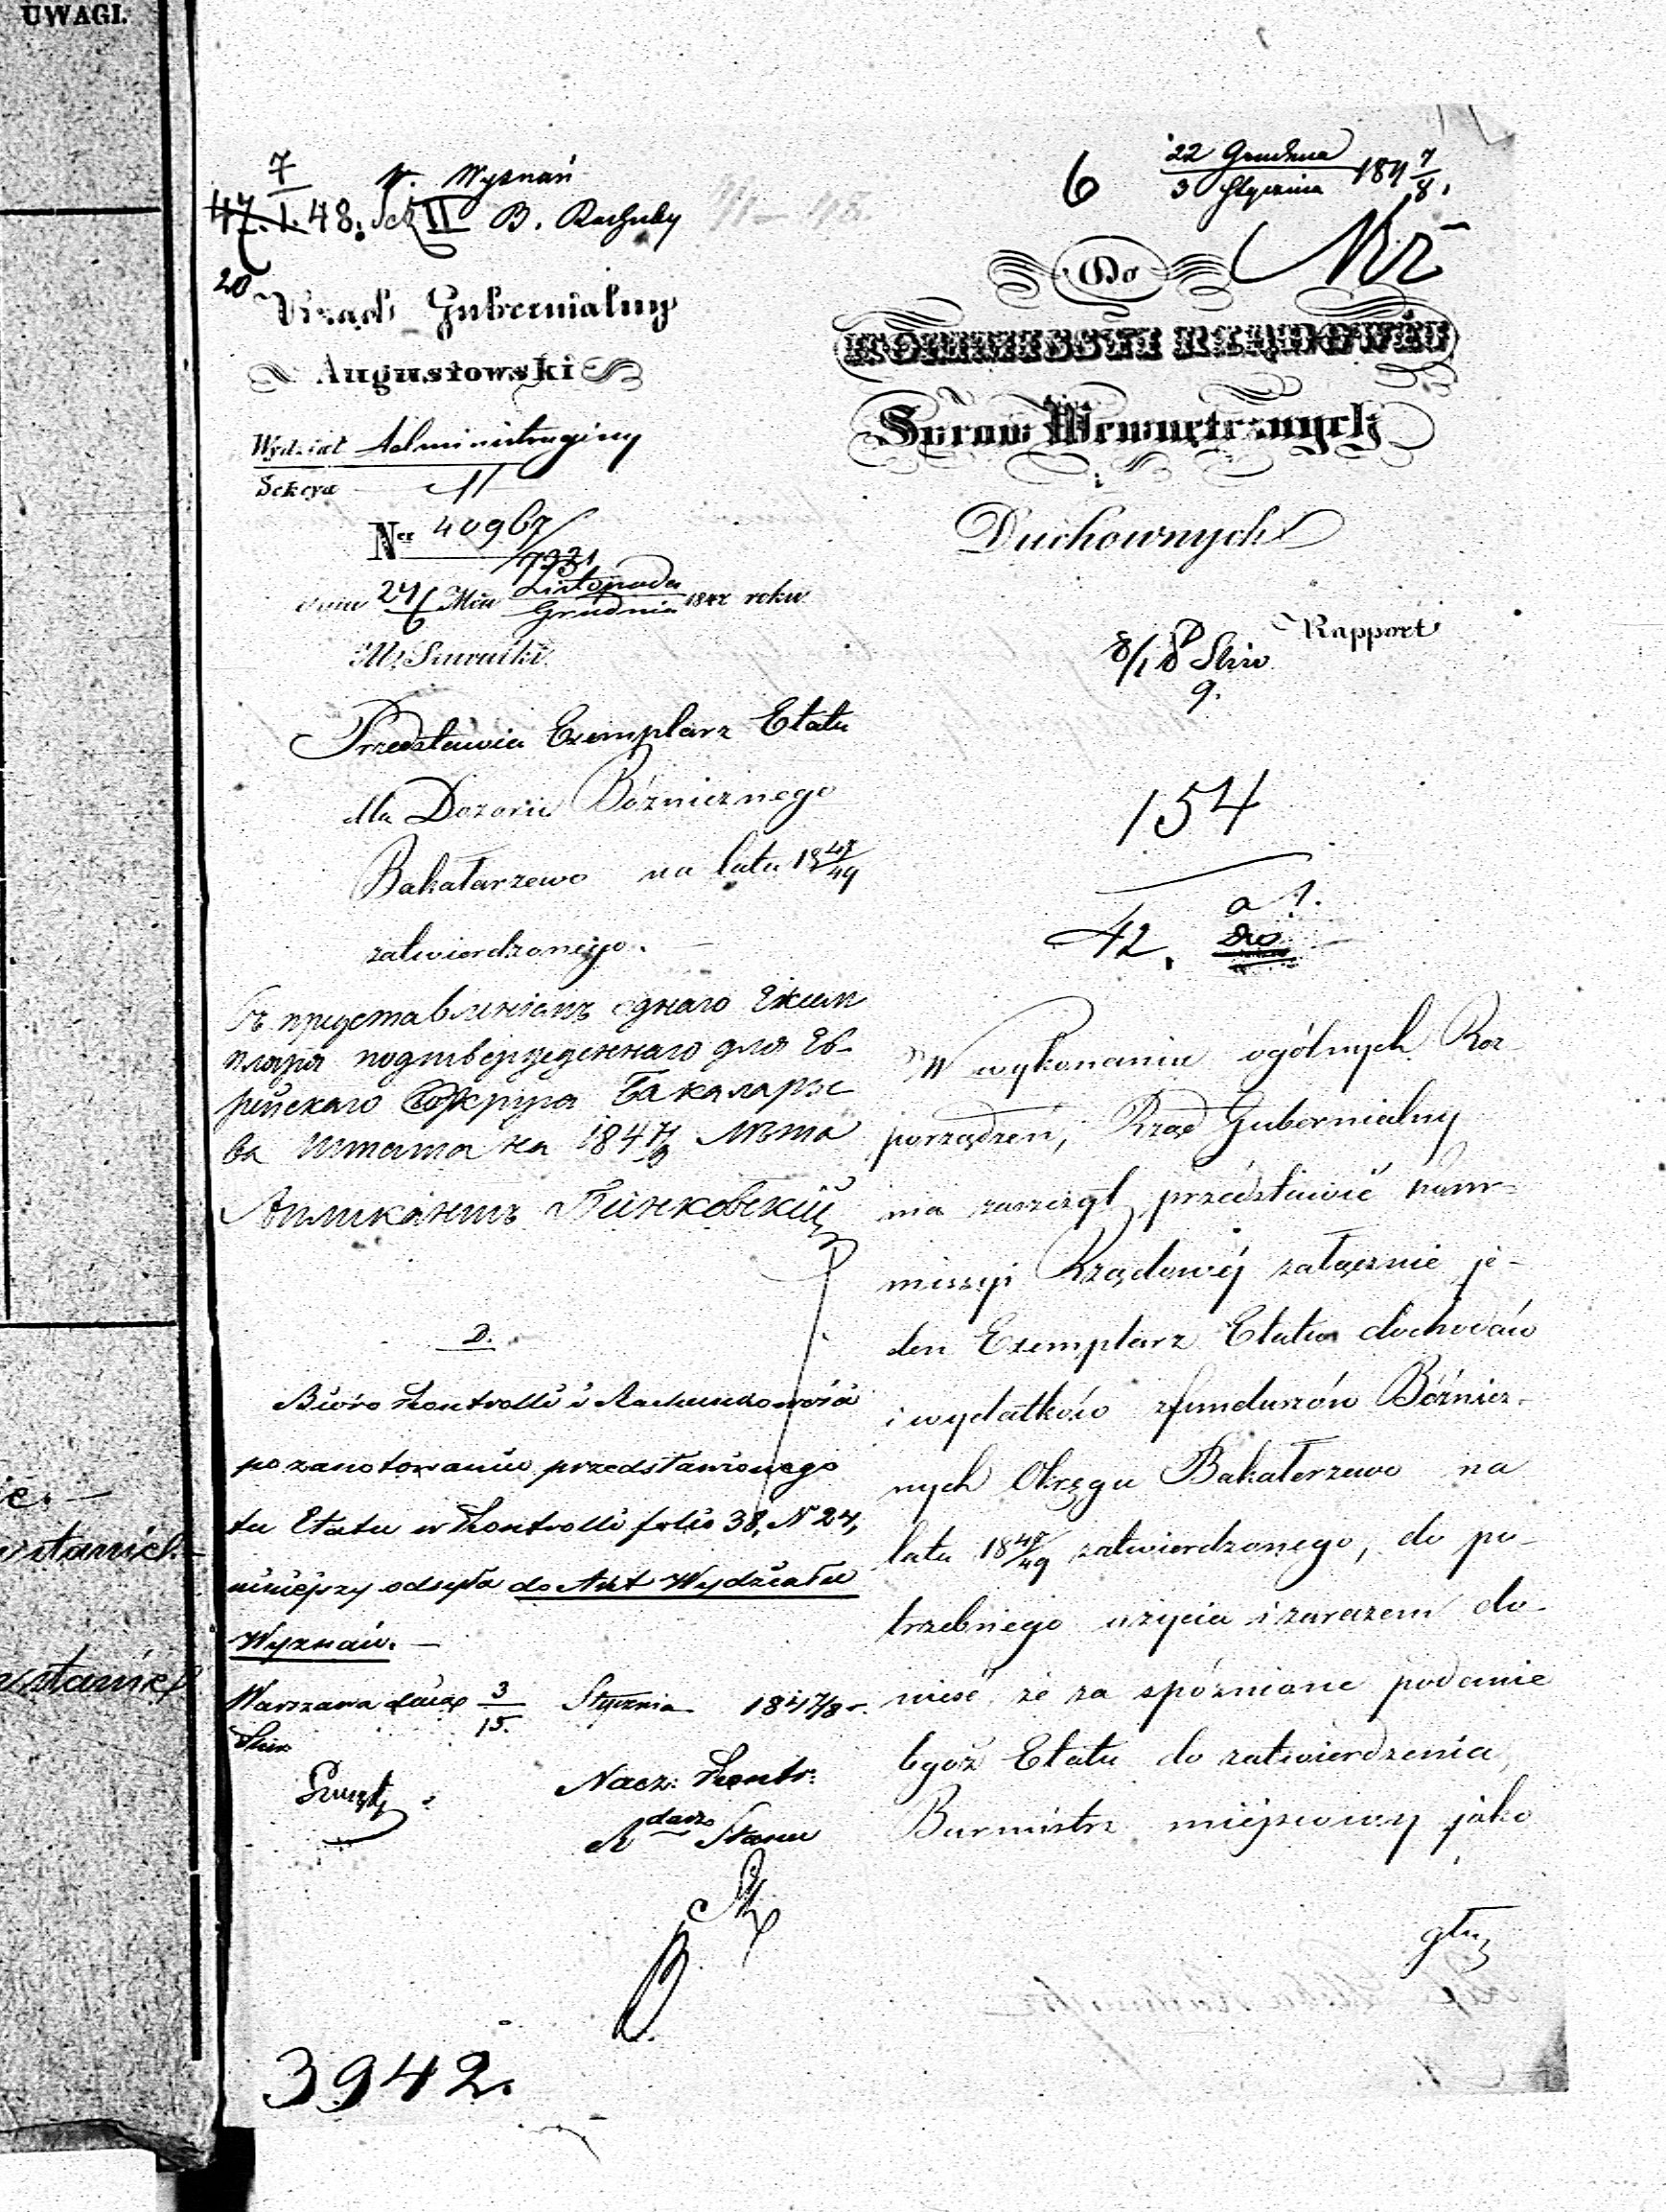 UWAGI.
7
47. 1. 48. Sek II B. Rachuby
W. Wyznań
20
Rząd Gubernialny
Augustowski
Wydział Administracyiny
Sekcya II
Ner 40967/7331
dnia 24/6 Mca Listopada/Grudnia 1847 roku
w Suwałki
Przedstawia Exemplarz Etatu
dla Dozoru Bóżnicznego
Bakałarzewo na lata 1847/49
zatwierdzonego.
Съ представленіемъ однаго Екзем
пляра подтвержденнаго для Ев-
рейскаго Округа Бакаларже
ва Штата на 1847/9 Лѣта
Апликантъ
D.
Biuro Kontrolli i Rachunkowości
po zanotowaniu przedstawionego
tu Etatu w Kontrolli folio 38, N 24,
niniejszy odsyła do Akt Wydziału
Wyznań. —
Warszawa dnia 3/15. Stycznia 1847/8 r.
Nacz: Kontr:
R dca Stanu
3942.
6
22 Grudnia/3 Stycznia 1847/8.
Do
KOMMISSYI RZĄDOWÉJ
Spraw Wewnętrznych
i
Duchownych
Rapport
9.
154
42.
W wykonaniu ogólnych Roz
porządzeń, Rząd Gubernialny
ma zaszczyt przedstawić Kom-
missyi Rządowéj załącznie je-
den Exemplarz Etatu dochodów
i wydatków z funduszów Bóżnicz-
nych Okręgu Bakałarzewo na
lata 1847/49 zatwierdzonego, do po-
trzebnego użycia i zarazem do-
nieść, że za spóźnione podanie
tegoż Etatu do zatwierdzenia,
Burmistrz miejscowy jako